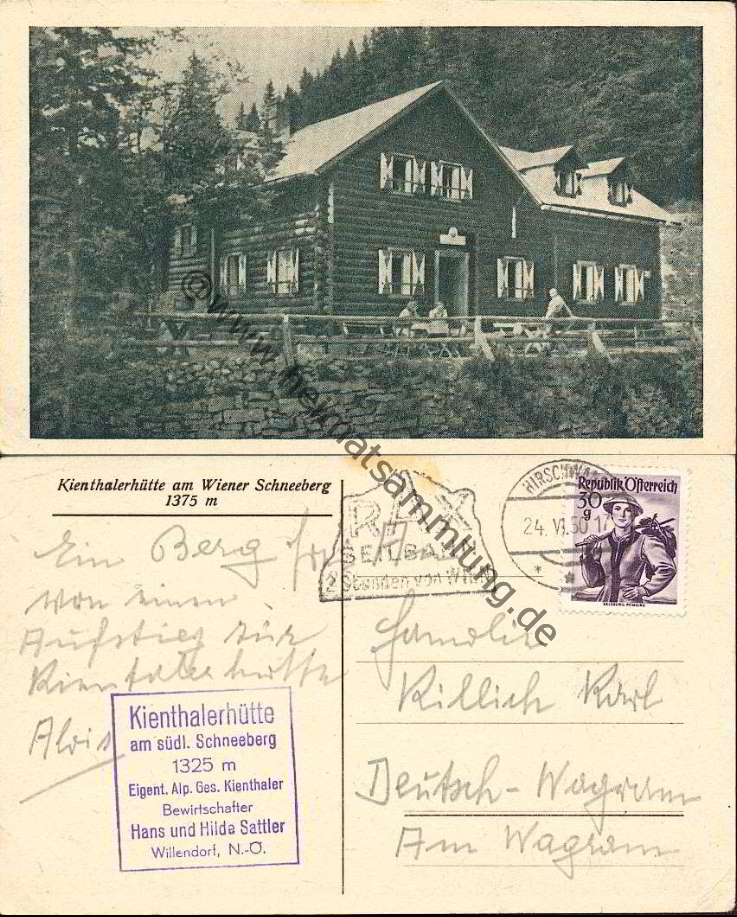 ©www.heimatsammlung.de
Kienthalerhütte am Wiener Schneeberg
1375 m
HIRSCHWA
24. VI. 50 17
RAX
SEILBAHN
2 Stunden von Wien
Republik Österreich
30
g
Ein Berg
von einen
Aufstieg zur
Kientalerhütte
Alois
Familie
Killich Karl
Deutsch-Wagram
Am Wagram
Kienthalerhütte
am südl. Schneeberg
1325 m
Eigent. Alp. Ges. Kienthaler
Bewirtschafter
Hans und Hilde Sattler
Willendorf, N.-Ö.